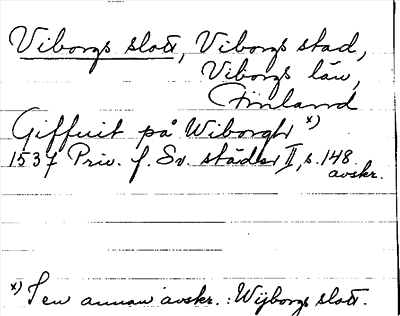 Viborgs slott, Viborgs stad,
Viborgs län,
Finland
Giffuit på Wiborgh x)
1537 Priv. f. Sv. städer II, s. 148
avskr.
x) I en annan avskr.: Wijborgs slott.